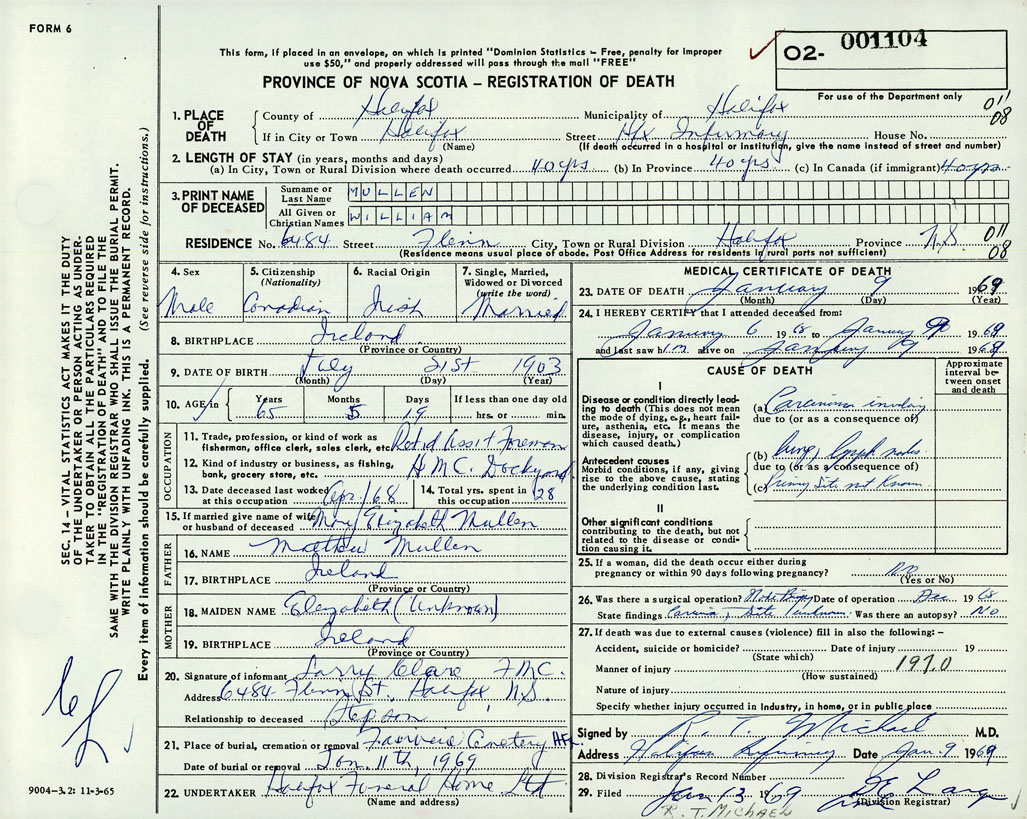 FORM 6
This form, if placed in an envelope, on which is printed "Dominion Statistics – Free, penalty for improper
use $50," and properly addressed will pass through the mail "FREE"
PROVINCE OF NOVA SCOTIA – REGISTRATION OF DEATH
O2- 001104
For use of the Department only
011
08
1. PLACE OF DEATH
County of Halifax Municipality of Halifax
If in City or Town Halifax Street Hfx Infirmary House No.
(Name) (If death occurred in a hospital or institution, give the name instead of street and number)
2. LENGTH OF STAY (in years, months and days)
(a) In City, Town or Rural Division where death occurred 40 yrs (b) In Province 40 yrs (c) In Canada (if immigrant) 40 yrs
3. PRINT NAME OF DECEASED
Surname or Last Name MULLEN
All Given or Christian Names WILLIAM
RESIDENCE No. 6484 Street Flenn City, Town or Rural Division Halifax Province N.S
(Residence means usual place of abode. Post Office Address for residents in rural parts not sufficient)
011
08
4. Sex Male
5. Citizenship (Nationality) Canadian
6. Racial Origin Irish
7. Single, Married, Widowed or Divorced (write the word) Married
8. BIRTHPLACE Ireland
(Province or Country)
9. DATE OF BIRTH July 21st 1903
(Month) (Day) (Year)
10. AGE in Years 65 Months 5 Days 19 If less than one day old hrs. or min.
OCCUPATION
11. Trade, profession, or kind of work as fisherman, office clerk, sales clerk, etc. Retd Asst Foreman
12. Kind of industry or business, as fishing, bank, grocery store, etc. H M C. Dockyard
13. Date deceased last worked at this occupation Apr/68
14. Total yrs. spent in this occupation 28
15. If married give name of wife or husband of deceased Mary Elizabeth Mullen
FATHER
16. NAME Mathew Mullen
17. BIRTHPLACE Ireland
(Province or Country)
MOTHER
18. MAIDEN NAME Elezabeth (Unknown)
19. BIRTHPLACE Ireland
(Province or Country)
20. Signature of informant Larry Clare
Address 6484 Flenn St., Halifax, N.S.
Relationship to deceased Step son
21. Place of burial, cremation or removal Fairview Cemetery Hfx
Date of burial or removal Jan. 11th, 1969
22. UNDERTAKER Halifax Funeral Home Ltd
(Name and address)
MEDICAL CERTIFICATE OF DEATH
23. DATE OF DEATH January 9 1969
(Month) (Day) (Year)
24. I HEREBY CERTIFY that I attended deceased from:
January 6 1968 to January 9 1969
and last saw him alive on January 9 1969
CAUSE OF DEATH
Approximate interval between onset and death
I
Disease or condition directly leading to death (This does not mean the mode of dying, e.g., heart failure, asthenia, etc. It means the disease, injury, or complication which caused death.)
(a) Carcinoma involving
due to (or as a consequence of)
Antecedent causes
Morbid conditions, if any, giving rise to the above cause, stating the underlying condition last.
(b) lung, lymph nodes
due to (or as a consequence of)
(c) Primary Site not Known
II
Other significant conditions contributing to the death, but not related to the disease or condition causing it.
25. If a woman, did the death occur either during pregnancy or within 90 days following pregnancy?
(Yes or No)
26. Was there a surgical operation? Node Biopsy Date of operation Dec 1968
State findings Carcinoma, Site unknown Was there an autopsy? No
27. If death was due to external causes (violence) fill in also the following: –
Accident, suicide or homicide? Date of injury 19
(State which)
Manner of injury 197.0
(How sustained)
Nature of injury
Specify whether injury occurred in Industry, in home, or in public place
Signed by R. T. Michael M.D.
Address Halifax Infirmary Date Jan. 9 1969
28. Division Registrar's Record Number
29. Filed Jan 13 1969
(Division Registrar)
R. T. MICHAEL
SEC. 14 – VITAL STATISTICS ACT MAKES IT THE DUTY
OF THE UNDERTAKER OR PERSON ACTING AS UNDER-
TAKER TO OBTAIN ALL THE PARTICULARS REQUIRED
IN THE "REGISTRATION OF DEATH" AND TO FILE THE
SAME WITH THE DIVISION REGISTRAR WHO SHALL ISSUE THE BURIAL PERMIT.
WRITE PLAINLY WITH UNFADING INK. THIS IS A PERMANENT RECORD.
Every item of information should be carefully supplied. (See reverse side for instructions.)
9004–3.2: 11-3-65